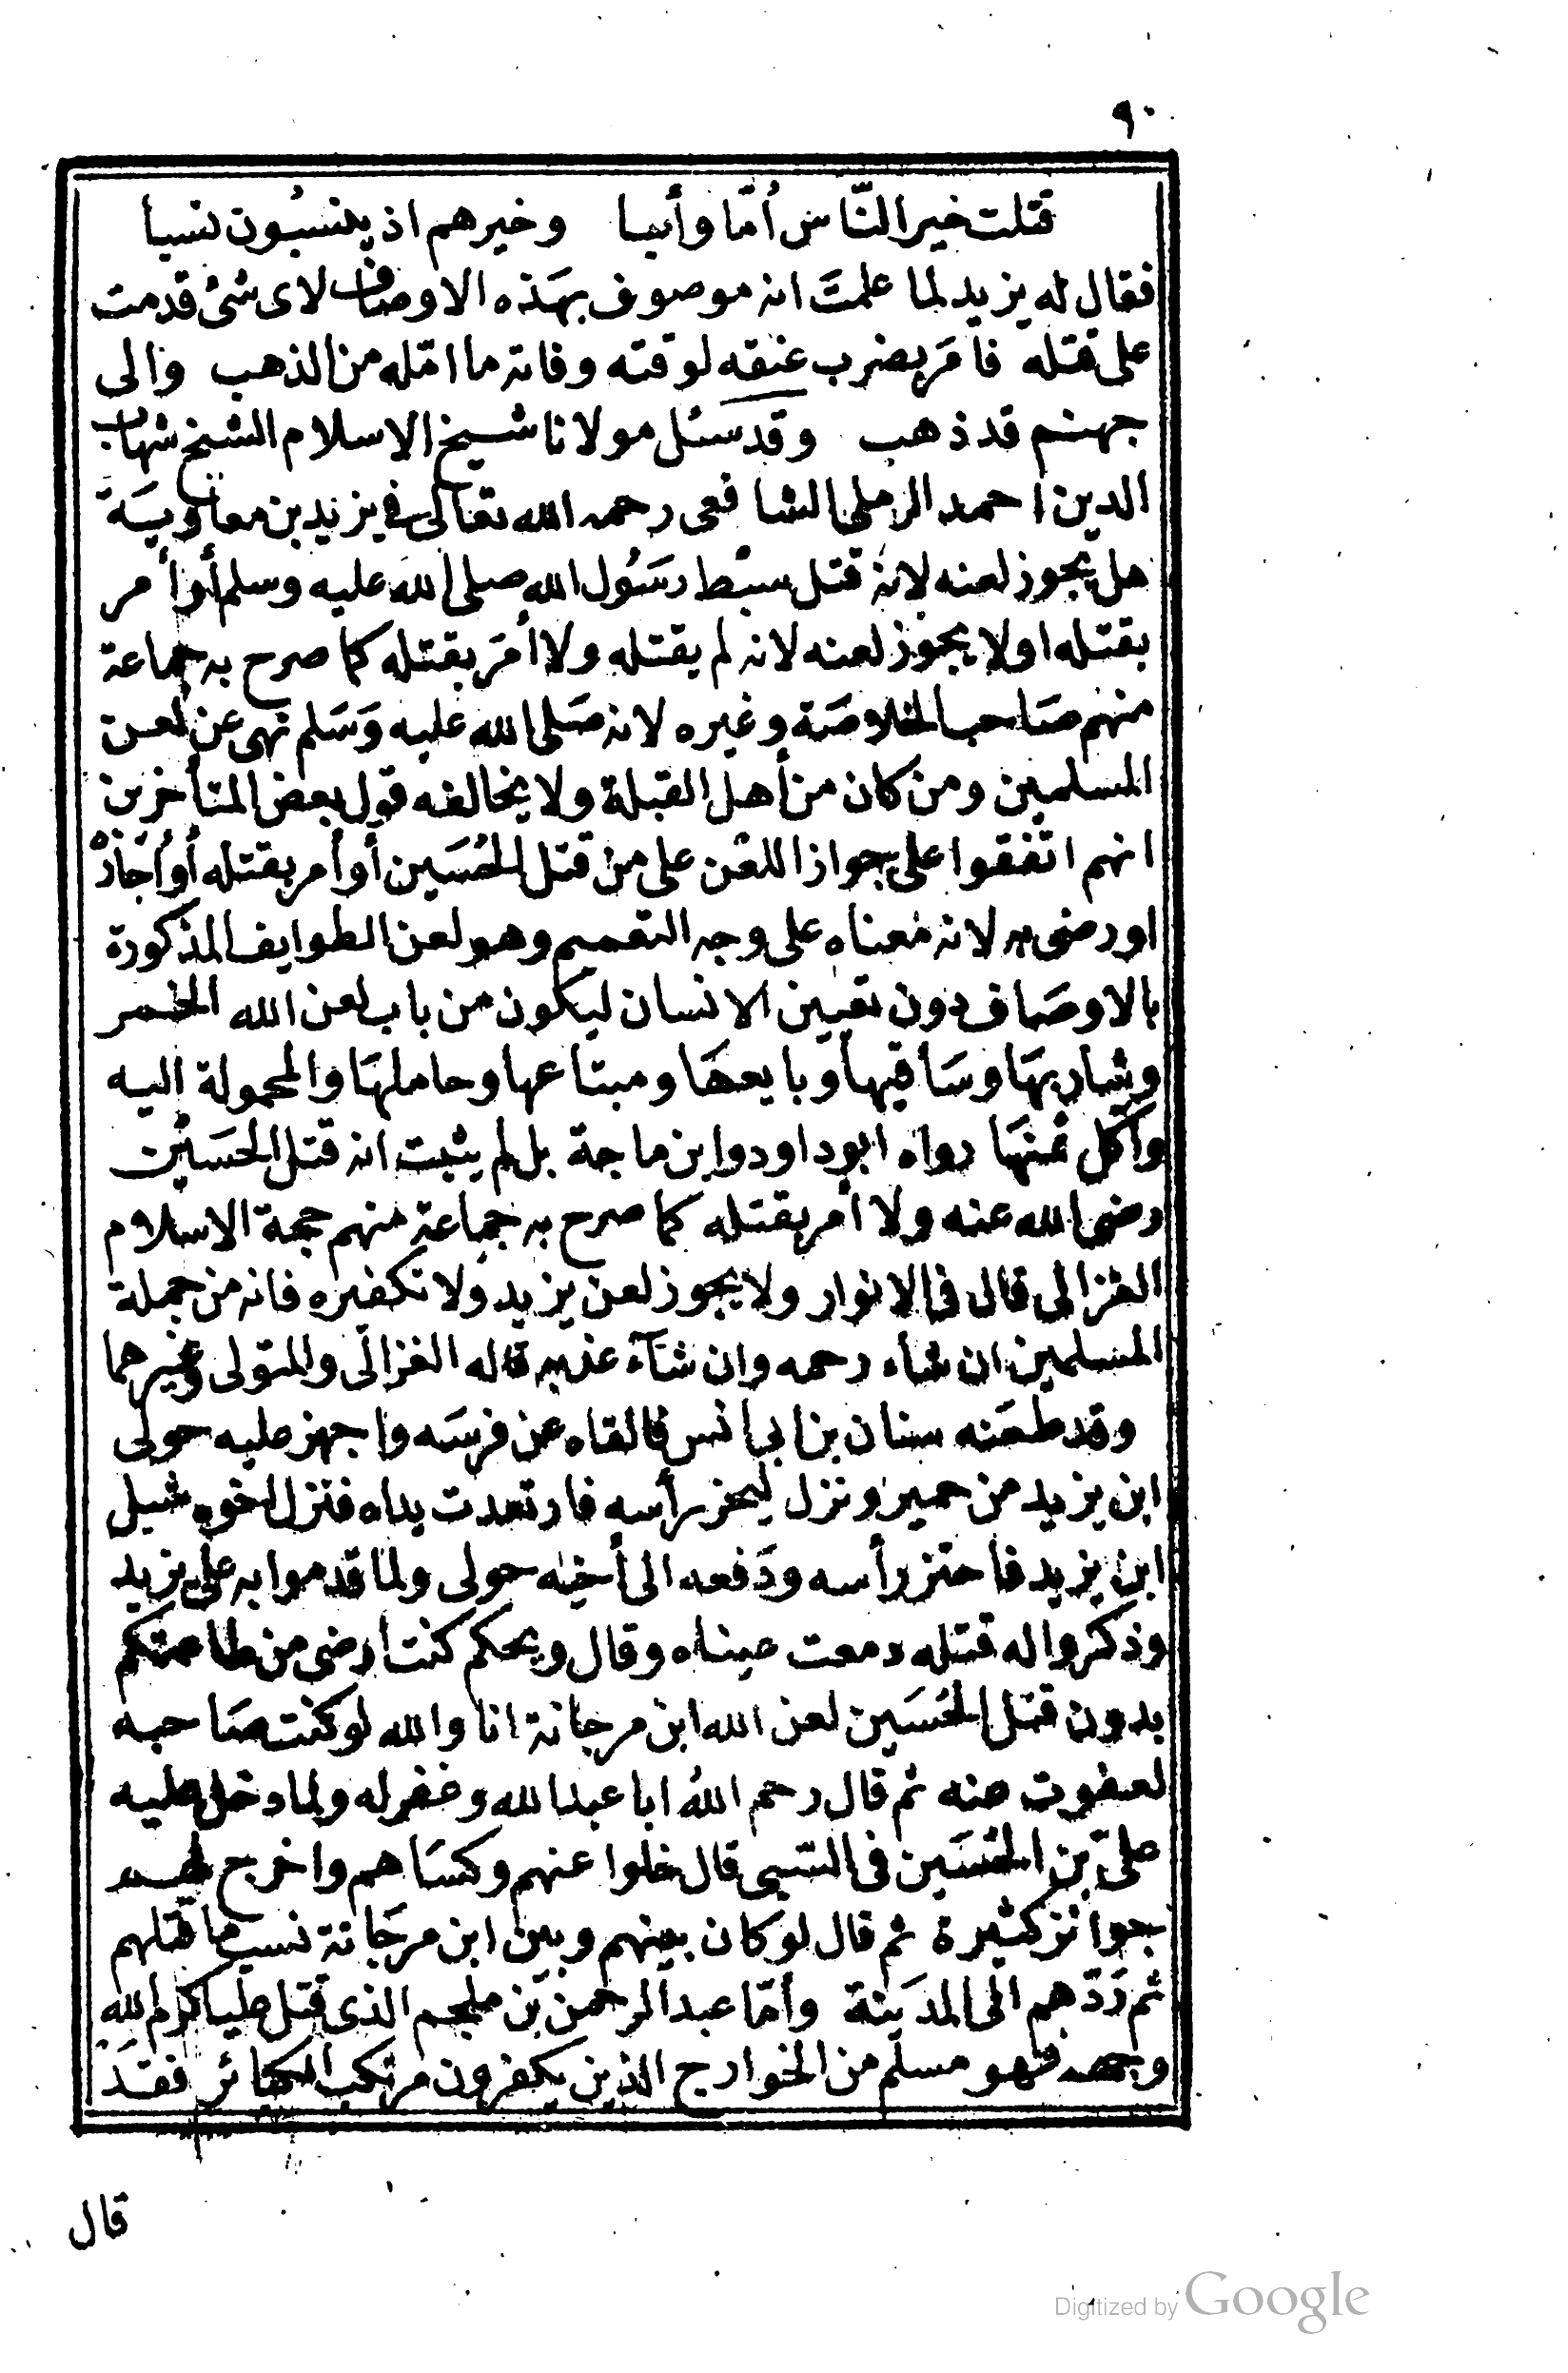 ٩٠
قتلت خير النّاس أُمّا وأبيا وخيرهم اذ ينسبُون نسبا
فقال له يزيد لما علمتَ انه موصوف بهَذه الاوصاف لاى شئ قدمت
على قتله فامَر بضرب عنقه لوقته وفاته ما امّله من الذهب والى
جهنم قد ذهب وقد سئل مولانا شيخ الاسلام الشيخ شهاب
الدين احمد الرملى الشافعى رحمه الله تعالى فى يزيد بن معاويَة
هل يجوز لعنه لانه قتل سبط رسَُول الله صلى الله عليه وسلم أو أمر
بقتله اولا يجوز لعنه لانه لم يقتله ولا أمَر بقتله كما صرح به جماعة
منهم صَاحب الخلاصَة وغيره لانه صَلى الله عليه وَسَلم نهى عن لعن
المسلمين ومن كان من أهل القبلة ولا يخالفه قول بعض المتأخرين
انهم اتفقوا على جواز اللعَن على من قتل الحُسَين أو أمر بقتله أو أجازَه
او رضى به لانه مَعناه على وجه التعميم وهو لعن الطوايف المذكورة
بالاوصَاف دون تعيين الانسان ليكون من باب لعن الله الخمر
وشاربهَا وسَاقيها وبايعهَا ومبتاعها وحاملهَا والمحمولة اليه
وآكل ثمنهَا رواه ابو داود وابن ماجة بل لم يثبت انه قتل الحسَين
رضى الله عنه ولا أمر بقتله كما صرح به جماعة منهم حجة الاسلام
الغزالى قال فى الانوار ولا يجوز لعن يزيد ولا تكفيره فانه من جملة
المسلمين ان شاء رحمه وان شآء عذبه قاله الغزالى والمتولى وغيرهما
وقد طعَنه سنان بن ابى انس فالقاه عن فرسَه واجهز عليه حولى
ابن يزيد من حمير ونزل ليحز رأسه فارتعدت يداه فنزل اخوه شبل
ابن يزيد فاحتز رأسه ودَفعه الى أخيه حولى ولما قدموا به على يزيد
وذكروا له قتله دمعت عيناه وقال ويحكم كنت ارضى من طاعتكم
بدون قتل الحُسَين لعن الله ابن مرجانة انا والله لو كنت صَاحبه
لعفوت عنه ثم قال رحم اللهُ ابا عبد الله وغفر له ولما دخل عليه
علىّ بن الحُسَين فى السّبى قال خلوا عنهم وكسَاهم واخرج لهم
جوائز كثيرة ثم قال لو كان بينهم وبين ابن مرجَانة نسب ما قتلهم
ثم رَدّهم الى المدَينة وأمّا عبد الرحمن بن ملجم الذى قتل عليا كرم الله
وجهه فهو مسلم من الخوارج الذين يكفرون مرتكب الكبائر فقَدَ
قال
Digitized by Google